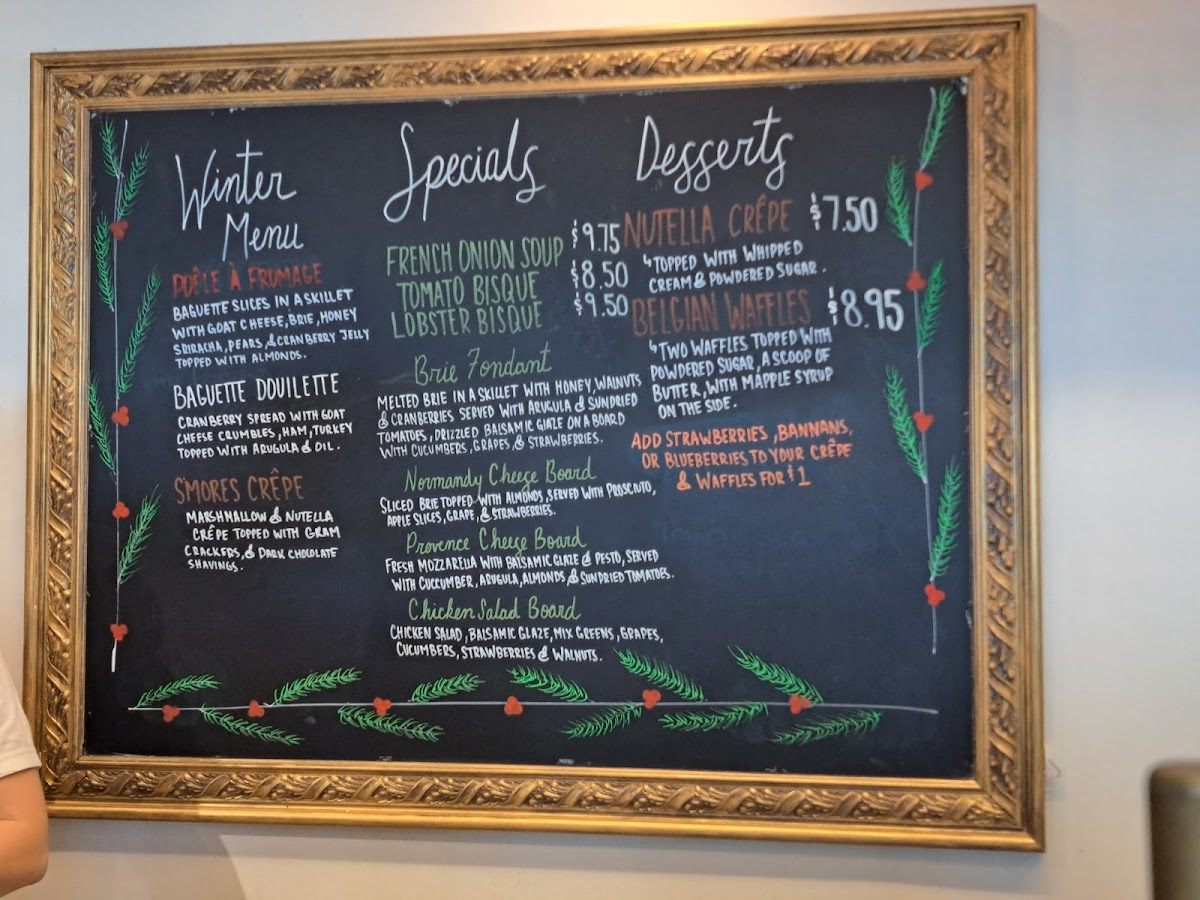 Winter
Menu
POÊLE À FROMAGE
BAGUETTE SLICES IN A SKILLET
WITH GOAT CHEESE, BRIE, HONEY
SRIRACHA, PEARS, & CRANBERRY JELLY
TOPPED WITH ALMONDS.
BAGUETTE DOUILETTE
CRANBERRY SPREAD WITH GOAT
CHEESE CRUMBLES, HAM, TURKEY
TOPPED WITH ARUGULA & OIL.
S'MORES CRÊPE
MARSHMALLOW & NUTELLA
CRÊPE TOPPED WITH GRAM
CRACKERS, & DARK CHOCOLATE
SHAVINGS.
Specials
FRENCH ONION SOUP $9.75
TOMATO BISQUE $8.50
LOBSTER BISQUE $9.50
Brie Fondant
MELTED BRIE IN A SKILLET WITH HONEY, WALNUTS
& CRANBERRIES SERVED WITH ARUGULA & SUNDRIED
TOMATOES, DRIZZLED BALSAMIC GLAZE ON A BOARD
WITH CUCUMBERS, GRAPES, & STRAWBERRIES.
Normandy Cheese Board
SLICED BRIE TOPPED WITH ALMONDS, SERVED WITH PROSCIUTO,
APPLE SLICES, GRAPE, & STRAWBERRIES.
Provence Cheese Board
FRESH MOZZARELLA WITH BALSAMIC GLAZE & PESTO, SERVED
WITH CUCCUMBER, ARUGULA, ALMONDS, & SUNDRIED TOMATOES.
Chicken Salad Board
CHICKEN SALAD, BALSAMIC GLAZE, MIX GREENS, GRAPES,
CUCUMBERS, STRAWBERRIES & WALNUTS.
Desserts
NUTELLA CRÊPE $7.50
↳ TOPPED WITH WHIPPED
CREAM & POWDERED SUGAR.
BELGIAN WAFFLES $8.95
↳ TWO WAFFLES TOPPED WITH
POWDERED SUGAR, A SCOOP OF
BUTTER, WITH MAPPLE SYRUP
ON THE SIDE.
ADD STRAWBERRIES, BANNANS,
OR BLUEBERRIES TO YOUR CRÊPE
& WAFFLES FOR $1